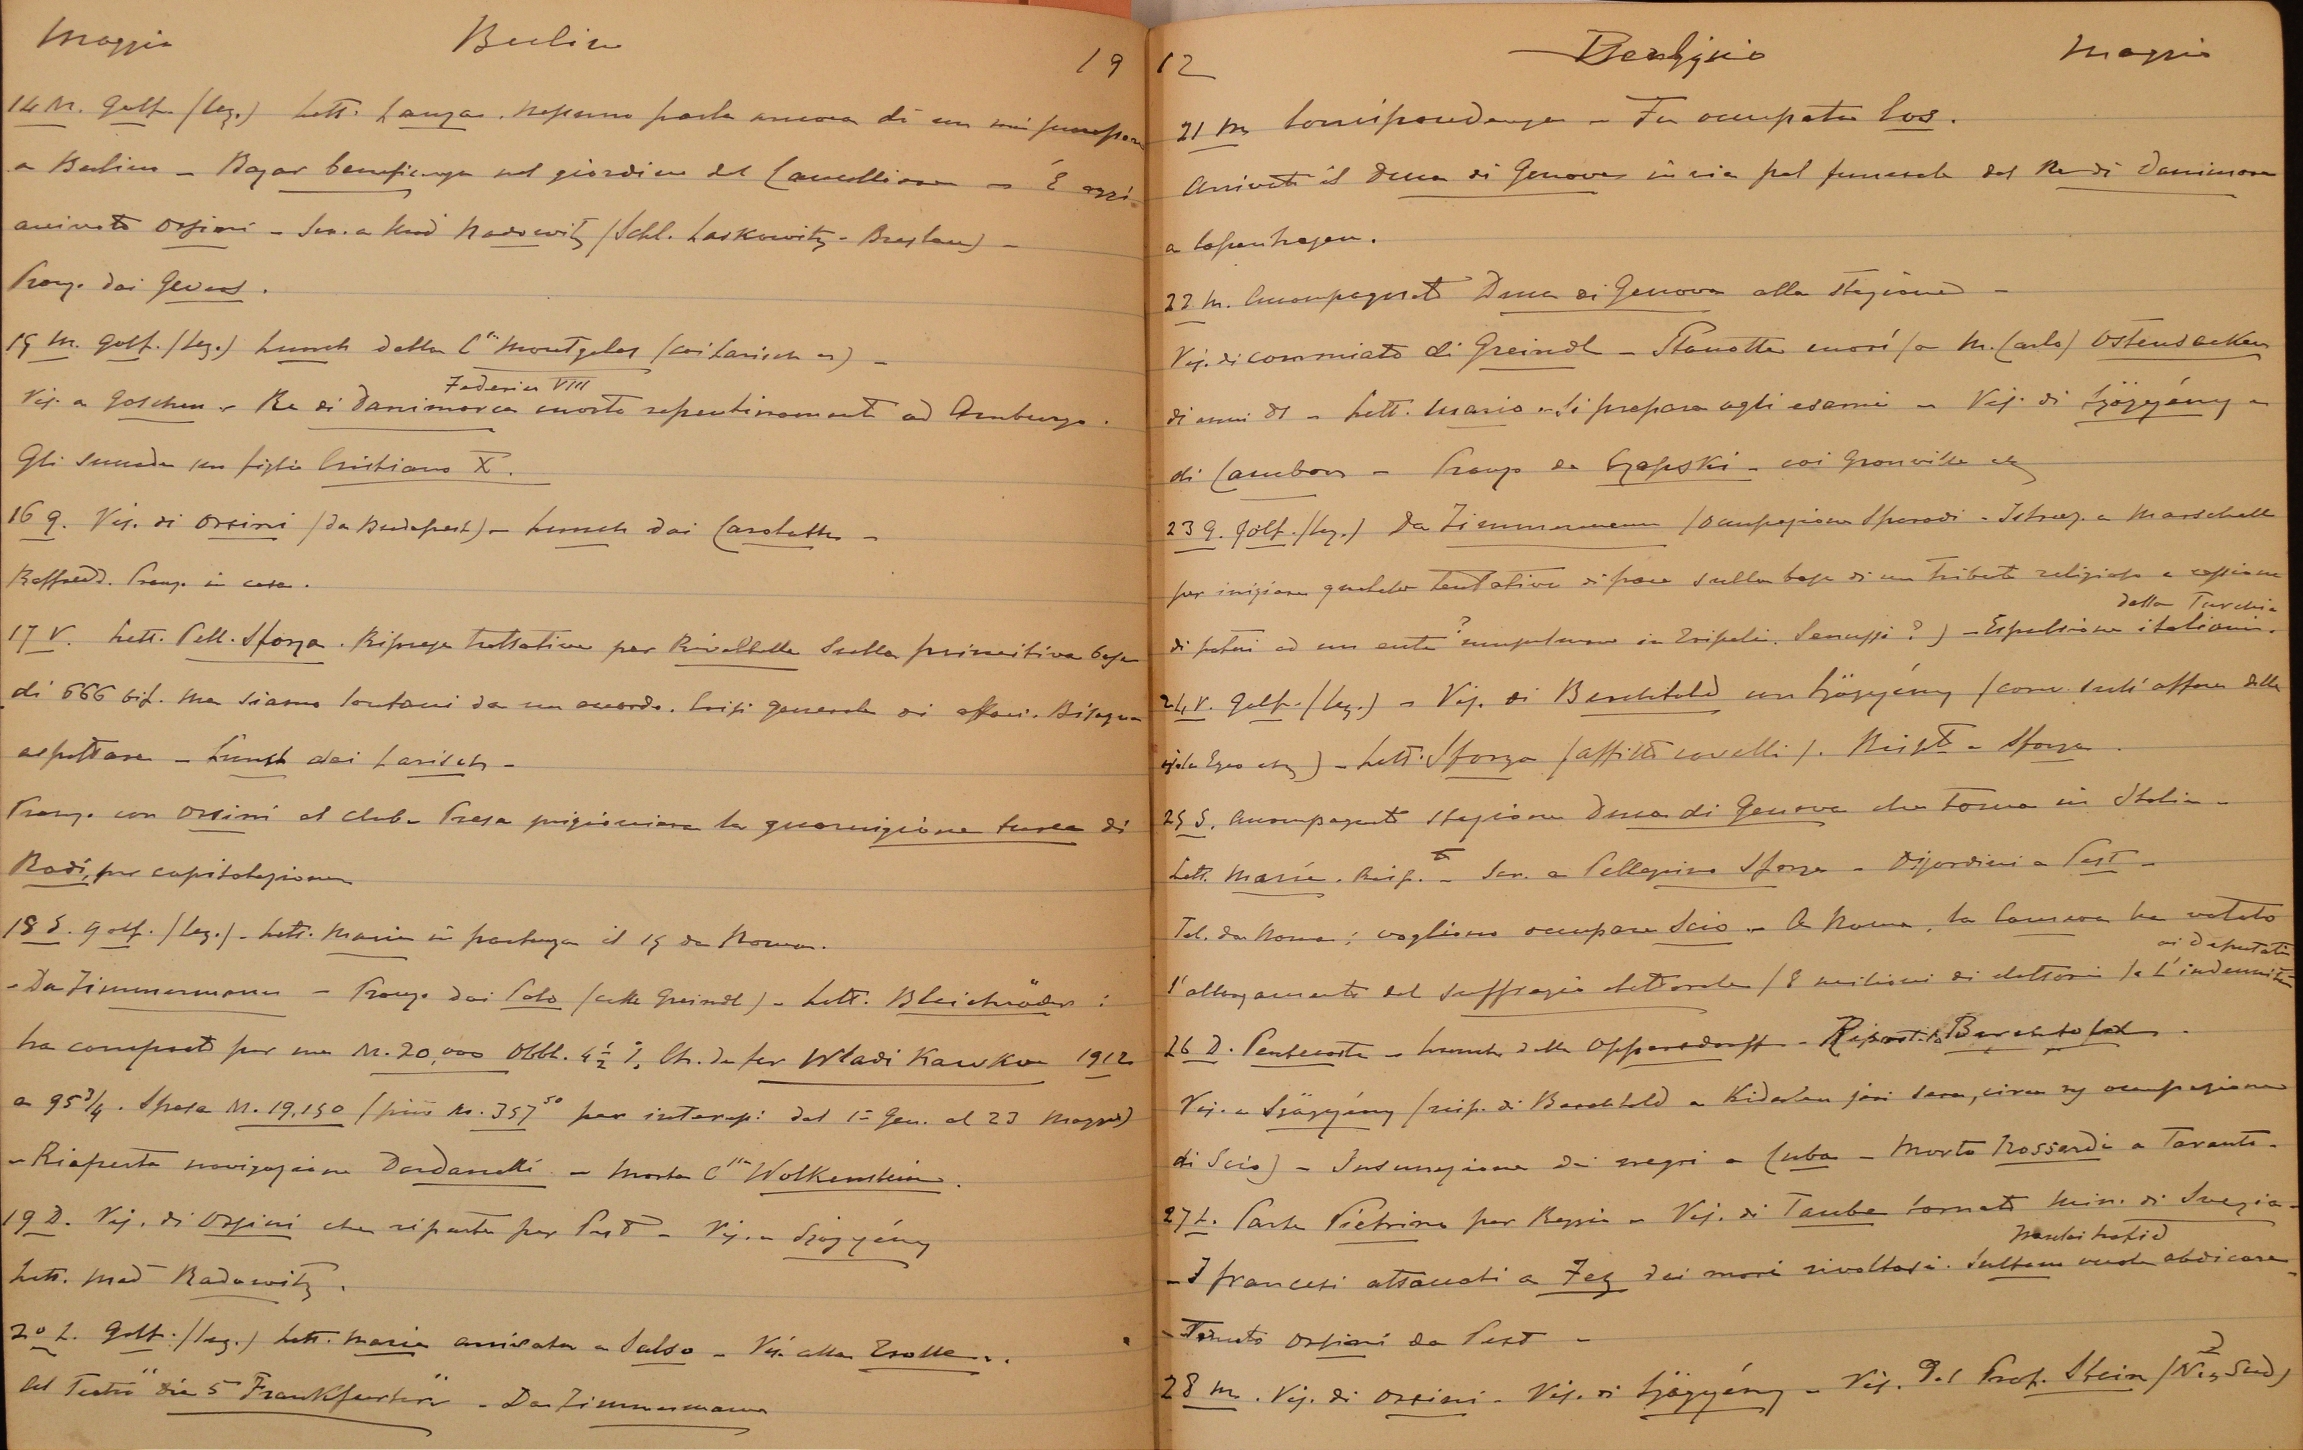 Maggio Berlin 19
14 M. Golf. (leg.) Lett. Lanza. Nessuno parla ancora di un mio
a Berlino - Bazar beneficenza nel giardino del Cancelliere - È oggi
arrivato Orsini - Scr. a Mad Radowitz (Schl. Laskowitz - Breslau) -
Pranz. dai Gevers.
15 M. Golf. (leg.) Lunch dalla Css Montgelas (coi Larisch es) -
Federico VIII
Vis. a Goschen - Re di Danimarca morto repentinamente ad Amburgo.
Gli succede suo figlio Cristiano X.
16 G. Vis. di Orsini (da Budapest) - Lunch dai
Raffredd. Pranz. in casa.
17 V. Lett. Pell. Sforza. Riprese trattative per Rivaltella sulla primitiva base
di 666 bif. ma siamo lontani da un accordo. Crisi generale di affari. Bisogna
aspettare - Lunch dai Larisch -
Pranz. con Orsini al Club - Presa prigioniera la guarnigione turca di
Rodi, per capitolazione
18 S. Golf. (leg.) - Lett. Maria in partenza il 19 da Roma.
- Da Zimmermann - Pranzo dai Polo (colle Greindl) - Lett. Bleichröder:
ha comprato per me M. 20,000 Obbl. 4 1/2 % Ch. de fer Wladi Kawkas 1912
a 95 3/4. Spesa M. 19,150 (più M. 357 50 per interessi dal 1º Gen. al 23 Maggio)
- Riaperta navigazione Dardanelli - Morta Css Wolkenstein.
19 D. Vis. di Orsini che riparte per Pest - Vis. a Szögyény
Lett. Mad Radowitz.
20 L. Golf. (leg.) Lett. Maria arrivata a Salso - Vis. alla Trolle.
Al Teatro "die 5 Frankfurter" - Da Zimmermann
12 Berlino Maggio
21 M Corrispondenza - Fu occupata Cos.
Arrivato il Duca di Genova in via pel funerale del Re di Danimarca
a Copenhagen.
22 M. Accompagnato Duca di Genova alla stazione -
Vis. di commiato di Greindl - Stanotte morì (a M. Carlo) Ostensacken
di anni 81 - Lett. Mario - Si prepara agli esami - Vis. di Szögyény e
di Cambon - Pranzo da Czapski - coi Granville es
23 G. Golf. (leg.) Da Zimmermann (Occupazione Sporadi - Istruz. a Marschall
per iniziare qualche tentativo di pace sulla base di un tributo religioso e cessione
della Turchia
di poteri ad un ente? musulmano in Tripoli. Senussi?) - Espulsione italiani.
24 V. Golf. (leg.) - Vis. di Berchtold con Szögyény (conv. sull'affare delle
isole Egeo es) - Lett. Sforza (affitto cavalli). Rispt a Sforza.
25 S. Accompagnato stazione Duca di Genova che torna in Italia -
Lett. Maria. Risp.to - Scr. a Pellegrino Sforza - Disordini a Pest -
Tel. da Roma: vogliono occupare Scio - A Roma, la Camera ha votato
ai Deputati
l'allargamento del suffragio elettorale (8 milioni di elettori) e l'indennità
26 D. Pentecoste - Lunch dalla Oppersdorff - Ripartito Berchtold.
Vis. a Szögyény (risp. di Berchtold a Kiderlen jeri sera, circa occupazione
di Scio) - Insurrezione dei negri a Cuba - Morto Rossardi a Taranto -
27 L. Parte Pietrino per Reggio - Vis. di Taube tornato min. di Svezia -
Moulai Hafid
- I francesi attaccati a Fez dai mori rivoltosi. Sultano vuole abdicare -
- Tornato Orsini da Pest -
28 M. Vis. di Orsini - Vis. di Szögyény - Vis. del Prof. Stein (